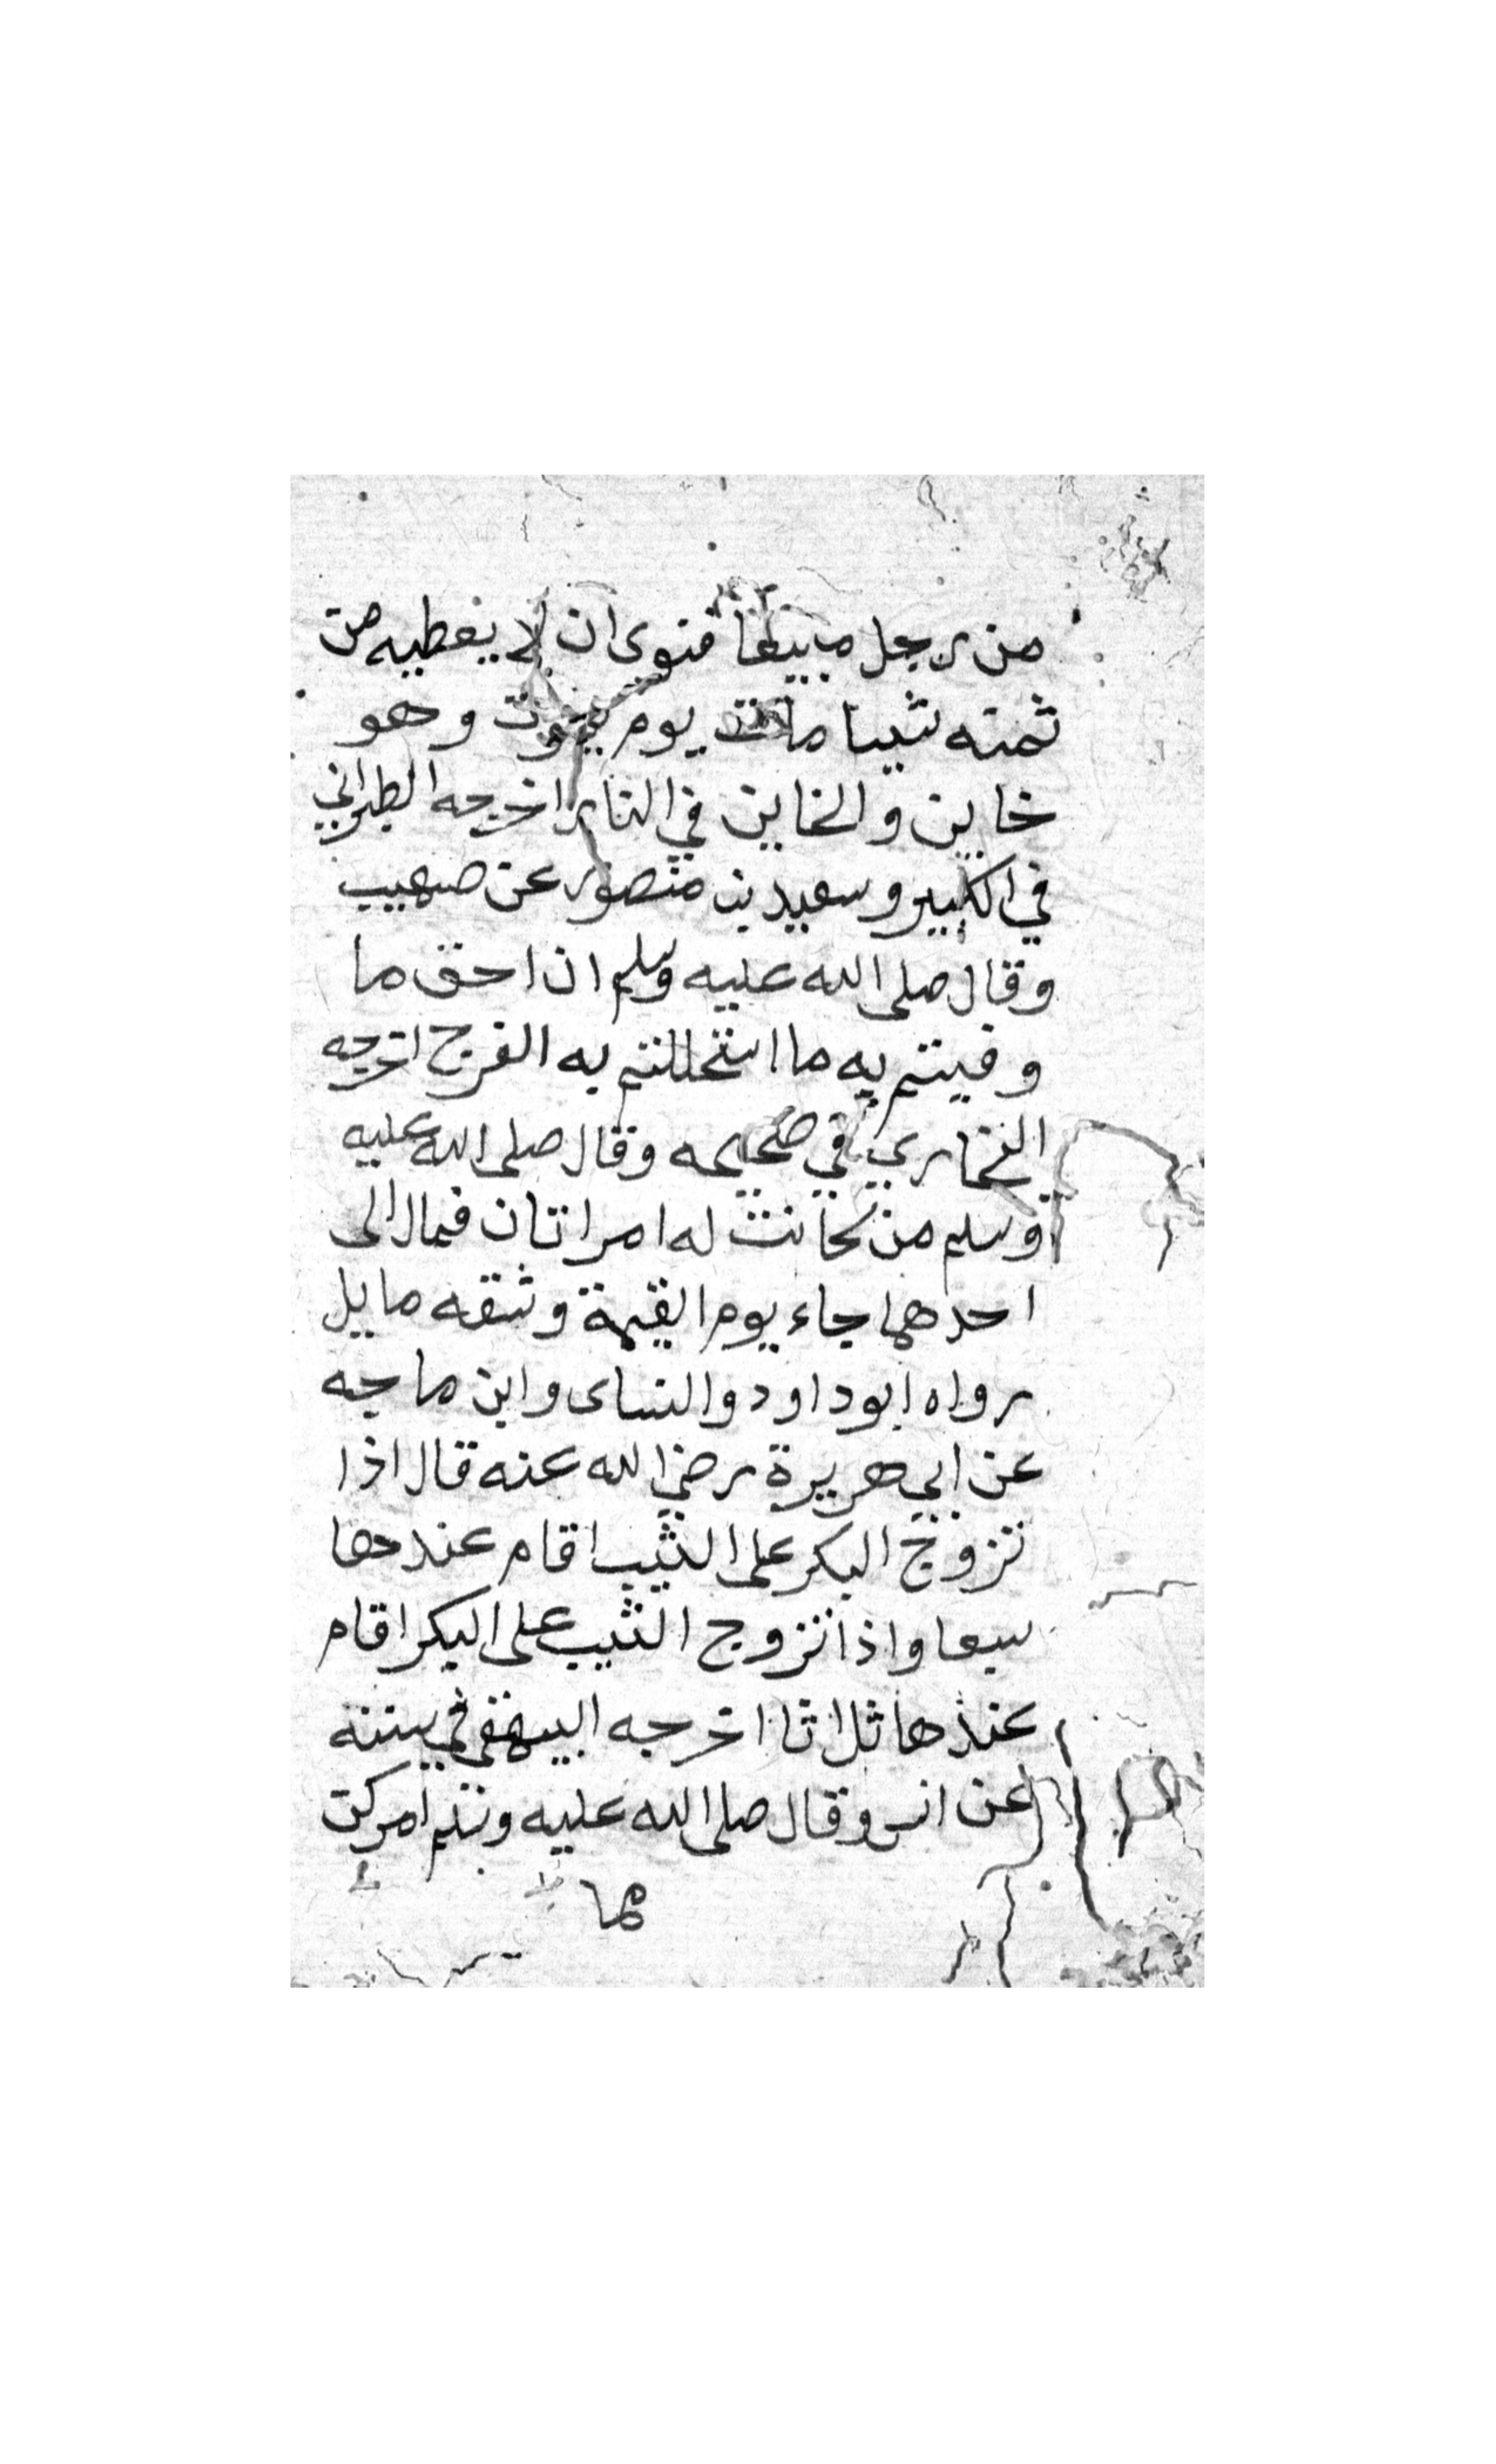 من رجل مبيعا فنوى ان لا يعطيه من
ثمنه شيئا مات يوم يموت وهو
خاين والخاين في النار اخرجه الطبراني
في الكبير وسعيد بن منصور عن صهيب
وقال صلى الله عليه وسلم ان احق ما
وفيتم به ما استحللتم به الفرج اخرجه
البخاري في صحيحه وقال صلى الله عليه
وسلم من كانت له امراتان فمال الى
احدهما جاء يوم القيمة وشقه مايل
رواه ابوداود والنساى وابن ماجه
عن ابي هريرة رضي الله عنه قال اذا
تزوج البكر على الثيب اقام عندها
سبعا واذا تزوج الثيب على البكر اقام
عندها ثلاثا اخرجه البيهقي في سننه
عن انس وقال صلى الله عليه وسلم امركن
مما